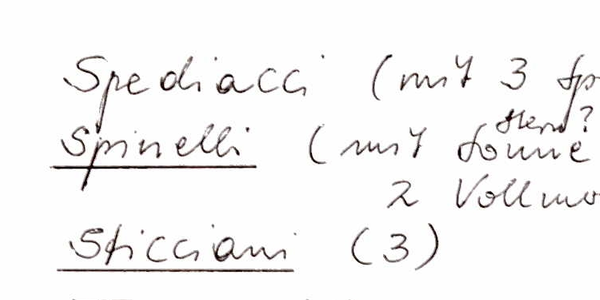 Spediacci (mit 3
Stern?
Spinelli (mit Sonne
2 Vollmo
Sticciani (3)